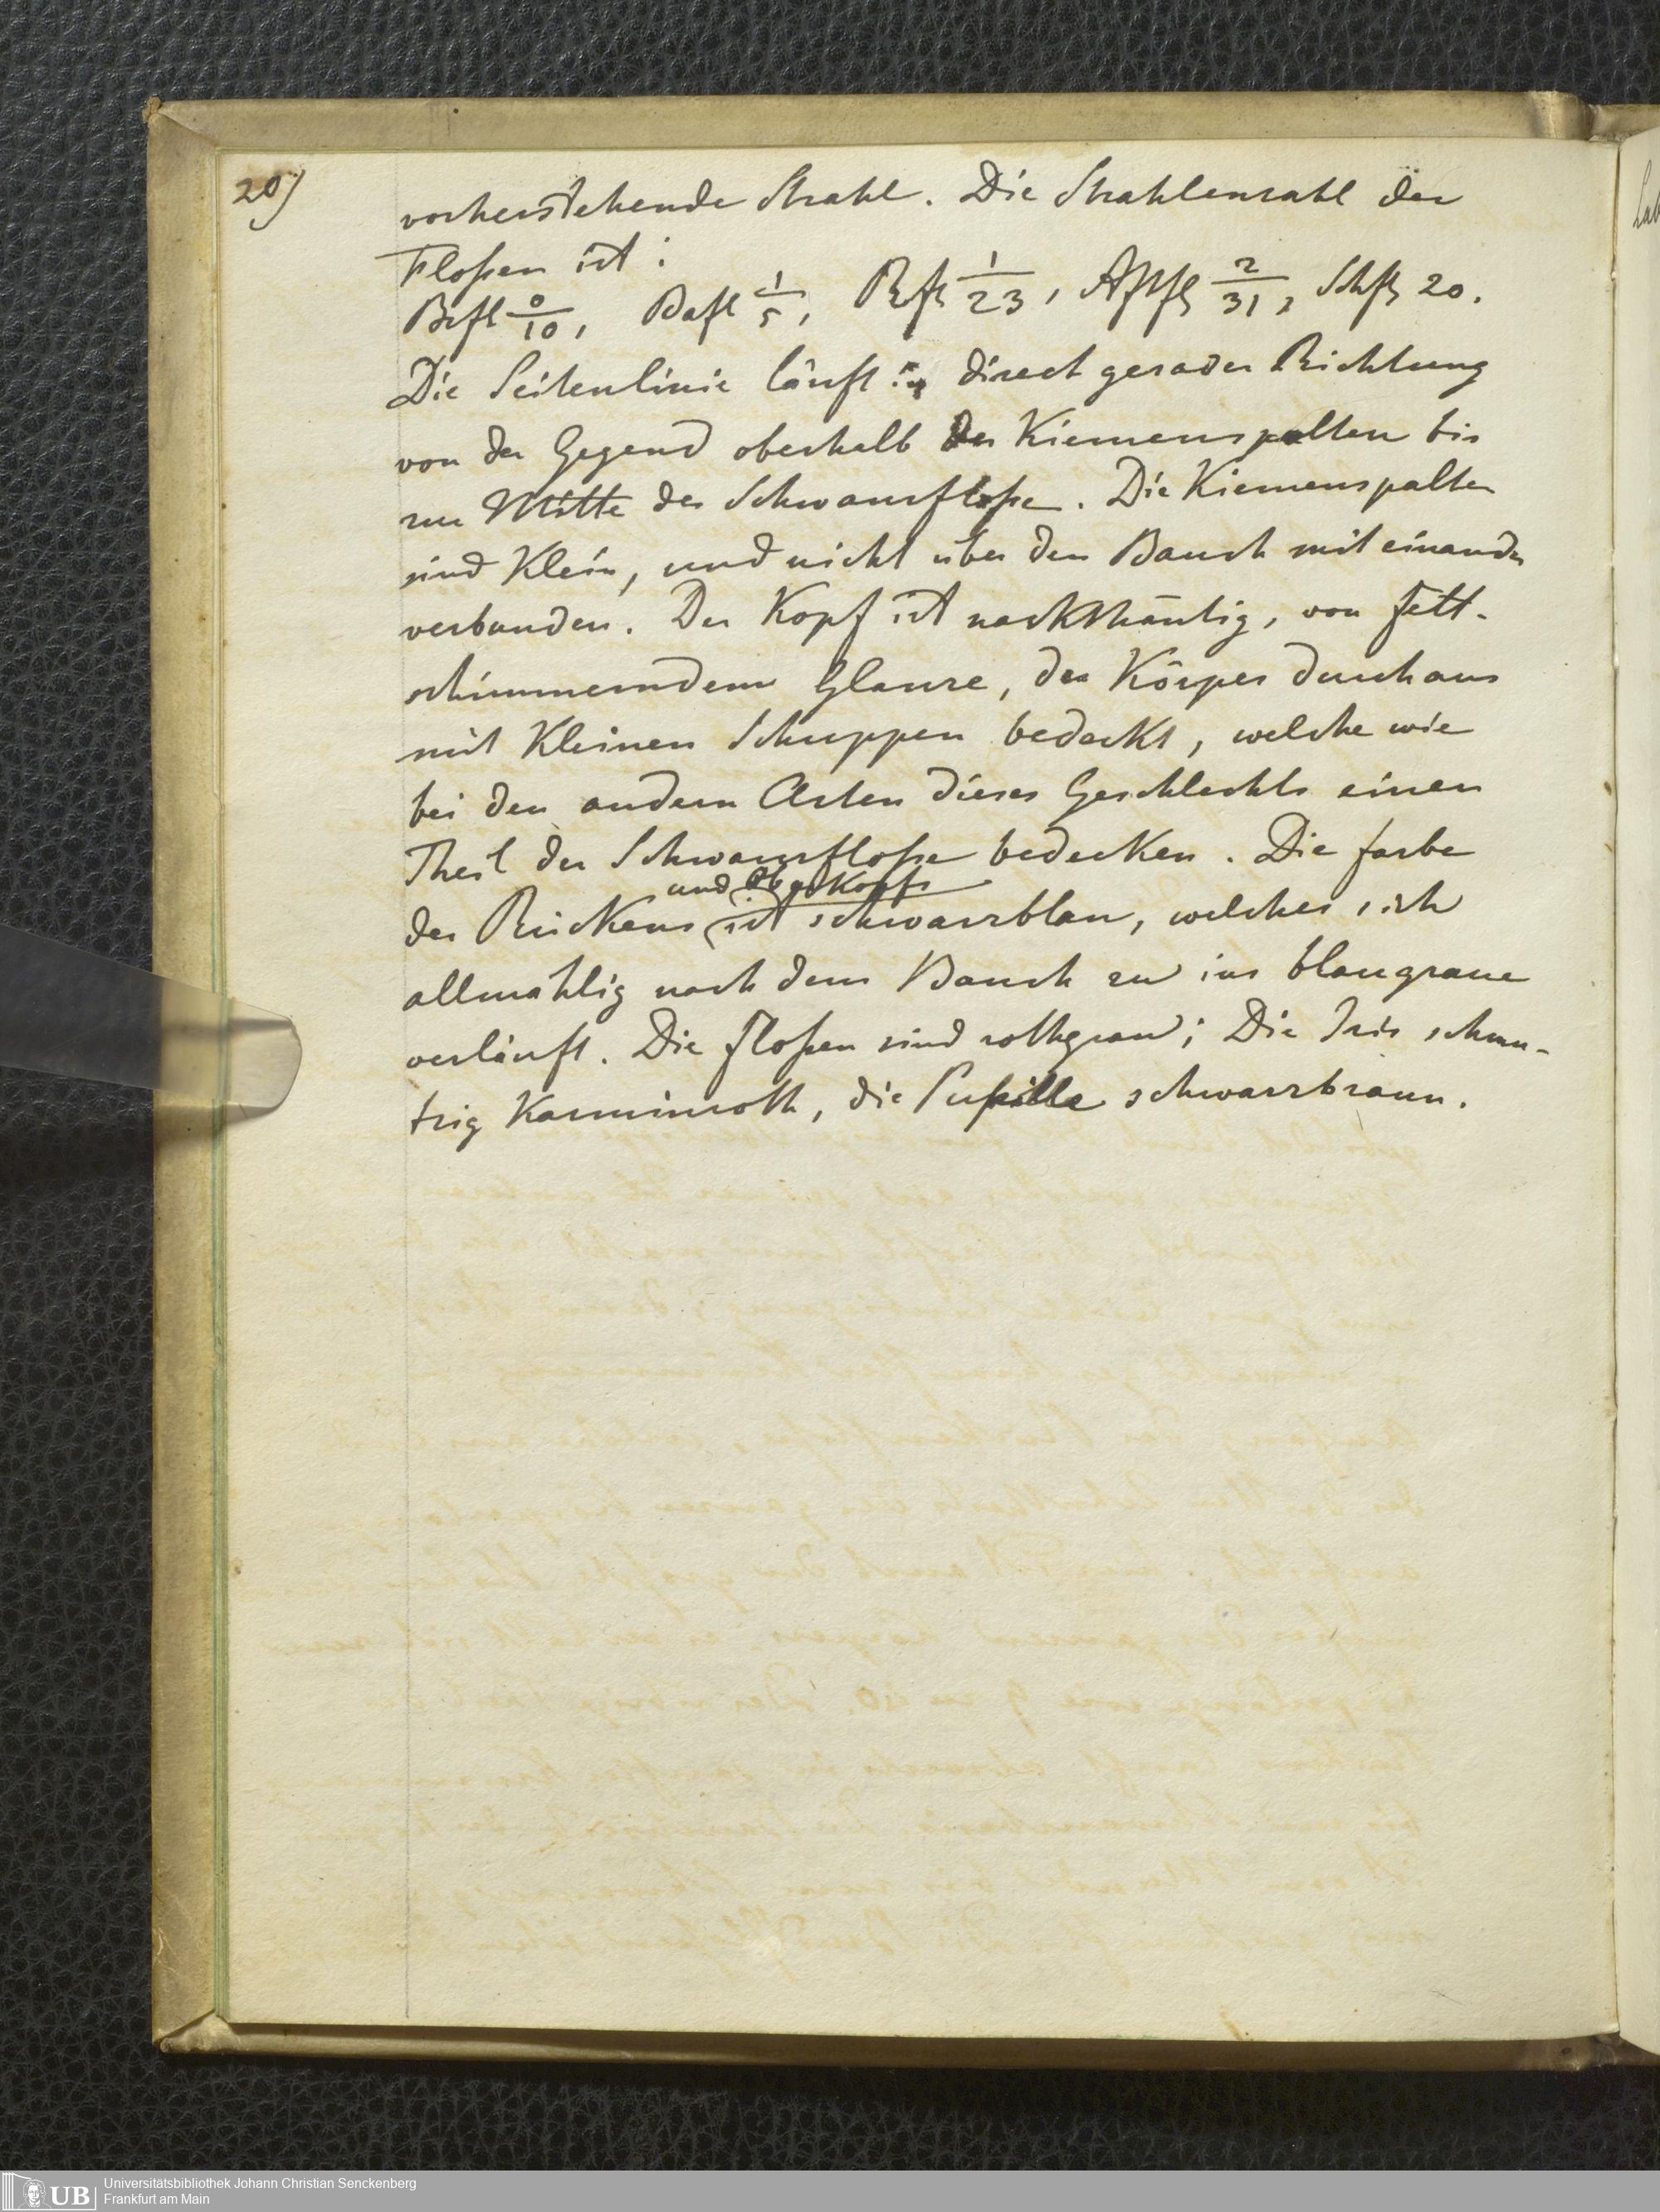 20)
vorherstehende Strahl. Die Strahlenzahl der
Floßen ist:
Brfl 0/10, Bafl 1/5, Rfl 1/23, Aftfl 2/31, Schfl 20.
Die Seitenlinie läuft in direct gerader Richtung
von der Gegend oberhalb der Kiemenspalten bis
zur Mitte der Schwanzfloße. Die Kiemenspalten
sind Klein, und nicht über den Bauch mit einander
verbunden. Der Kopf ist nackthäutig, von fett-
schimmerndem Glanze, der Körper durchaus
mit Kleinen Schuppen bedeckt, welche wie
bei den andern Arten dieses Geschlechts einen
Theil der Schwanzfloße bedecken. Die farbe
und Oberkopfs
des Rückens ist schwarzblau, welches sich
allmahlig nach dem Bauch zu ins blaugraue
verläuft. Die Floßen sind rothgrau; Die Iris schmu-
tzig Karminroth, die Pupille schwarzbraun.
UB
Universitätsbibliothek Johann Christian Senckenberg
Frankfurt am Main